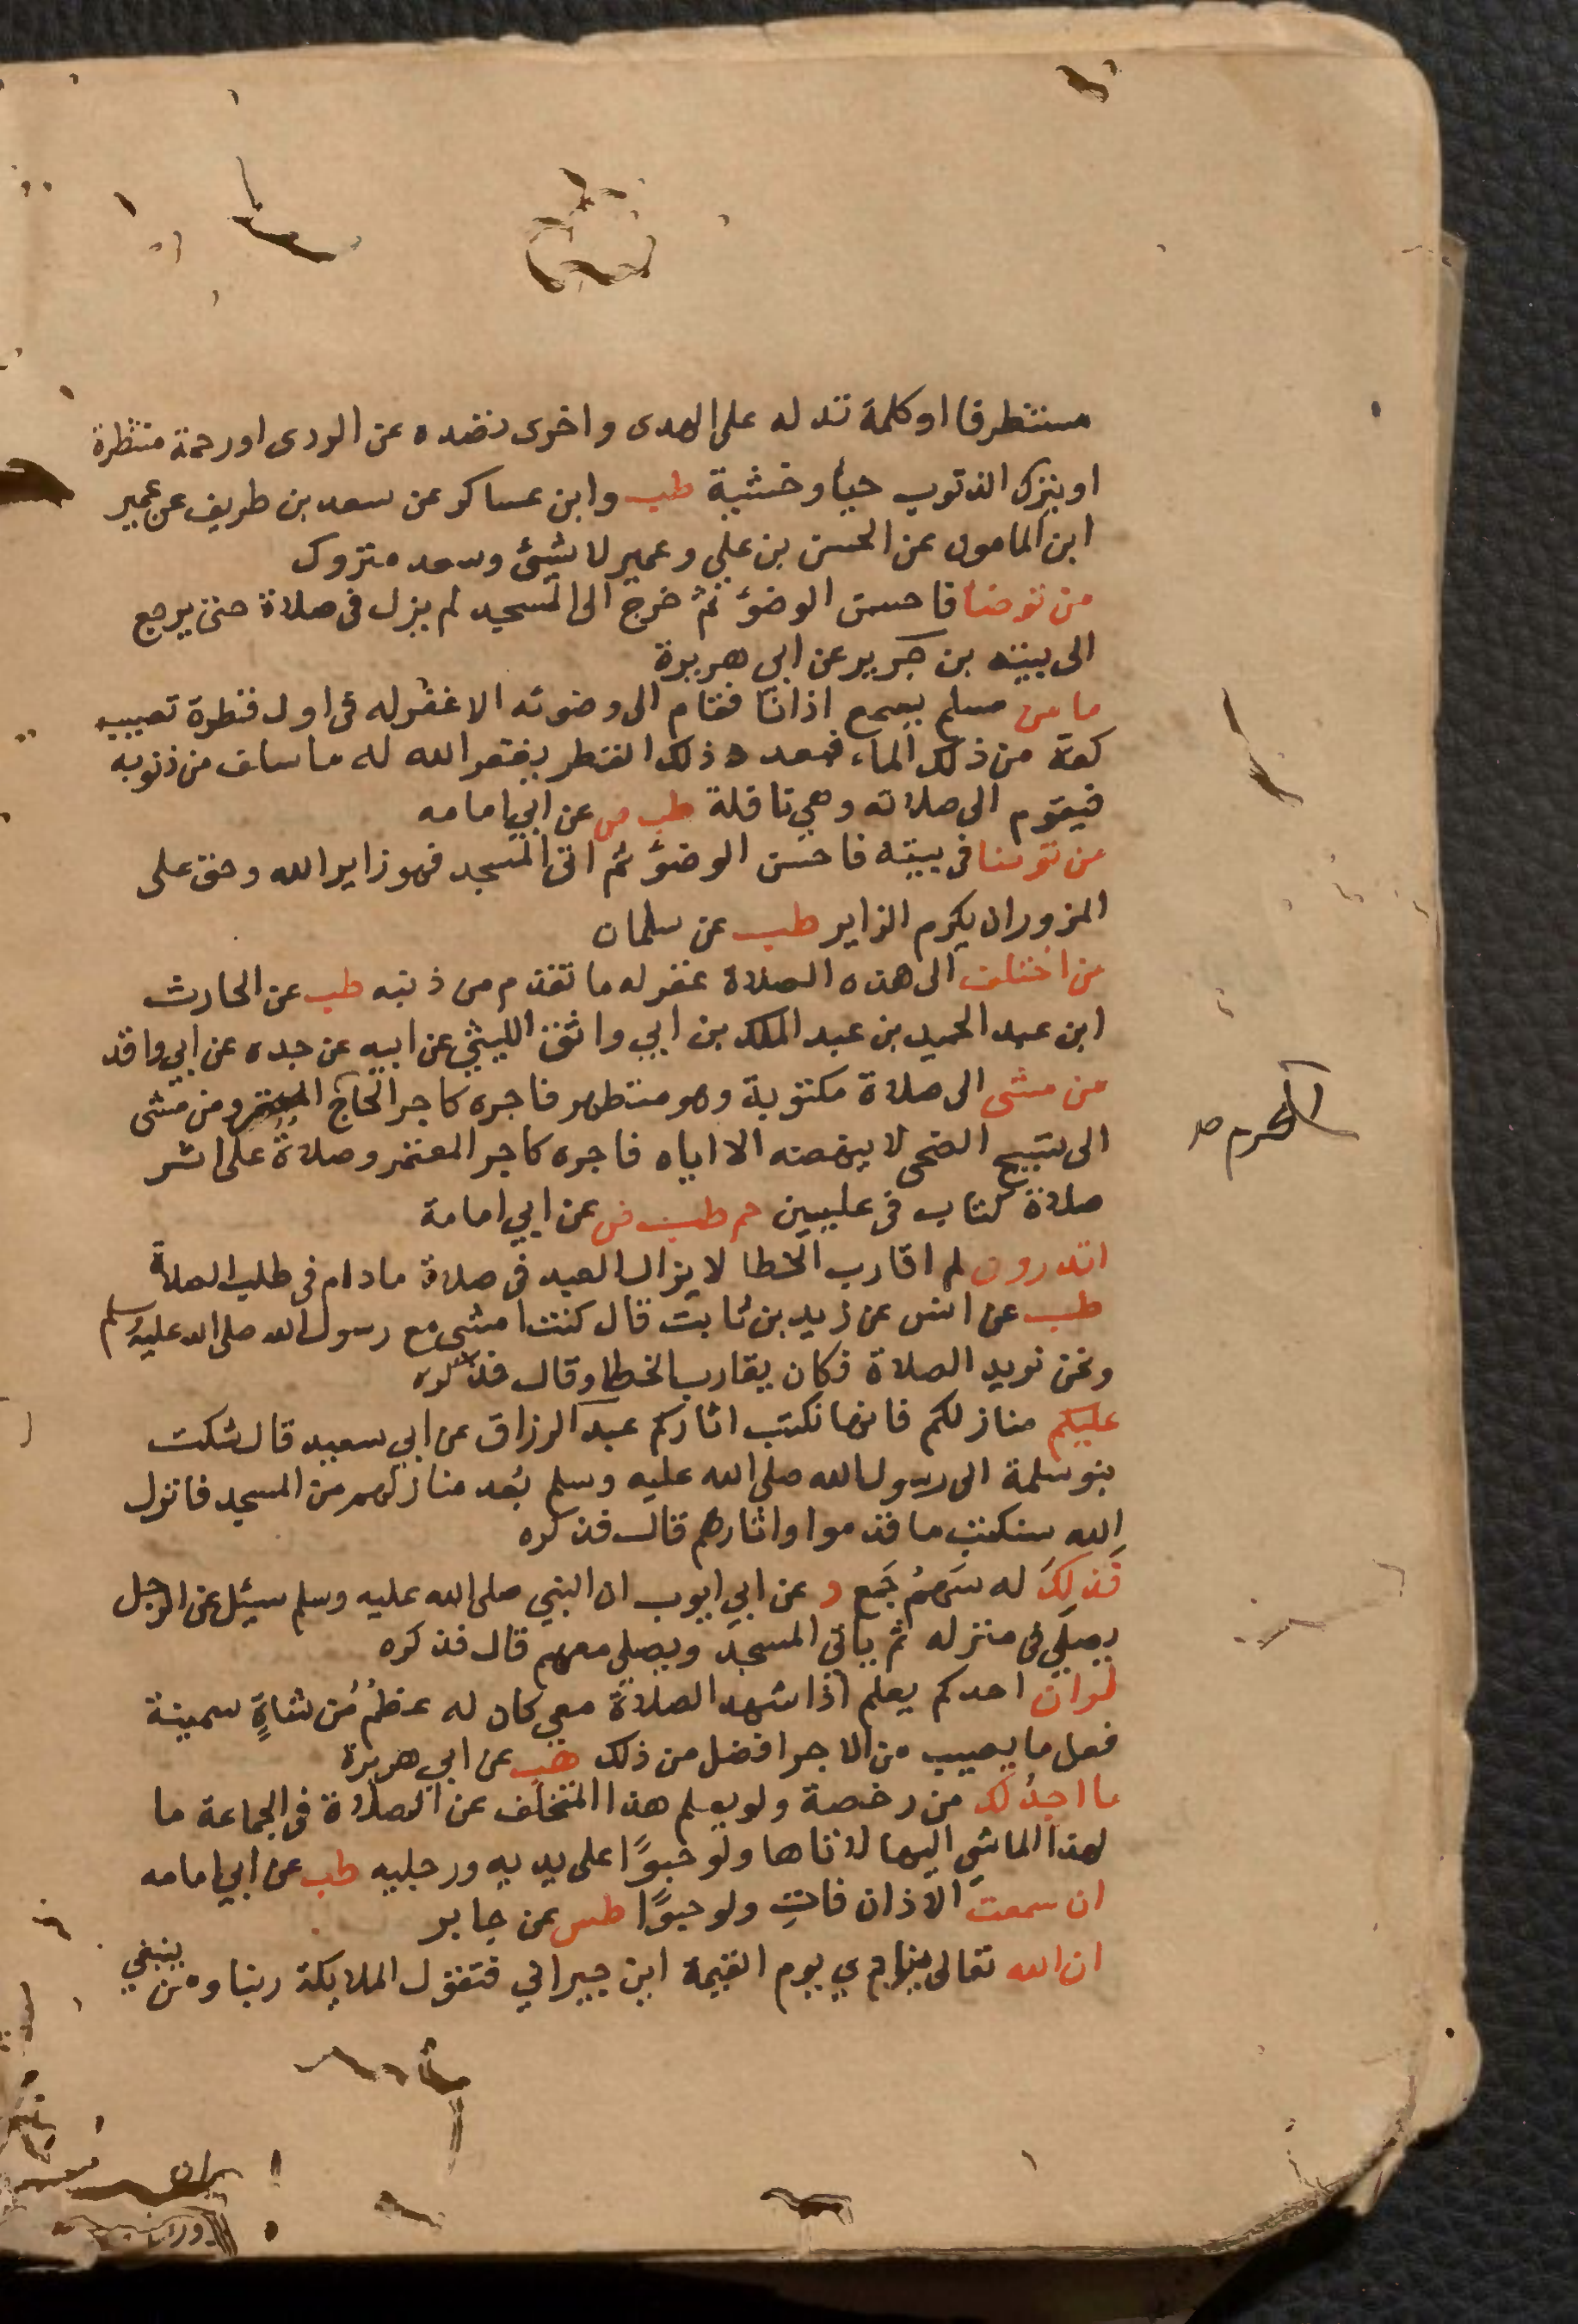 مستطرفا او كلمة تدله على الهدى واخرى تصده عن الردى او رحمة منتظرة
او يترك الذنوب حيأ وخشية طب وابن عساكر عن سعد بن طريف عن عمير
ابن المامون عن الحسن بن علي وعمير لا شيئ وسعد متروك
من توضا فاحسن الوضؤ ثم خرج الى المسجد لم يزل فى صلاة حتى يرجع
الى بيته بن جرير عن ابي هريرة
ما من مسلم يسمع اذانا فقام الى وضوئه الا غفر له فى اول قطرة تصيب
كفه من ذلك الماء فبعدد ذلك القطر يغفر الله له ما سلف من ذنوبه
فيقوم الى صلاته وهي نافلة طب ض عن ابي امامه
من توضا فى بيته فاحسن الوضؤ ثم اتى المسجد فهو زاير الله وحق على
المزور ان يكرم الزاير طب عن سلمان
من اختلف الى هذه الصلاة غفر له ما تقدم من ذنبه طب عن الحارث
ابن عبد الحميد بن عبد الملك بن ابي واقد الليثي عن ابيه عن جده عن ابي واقد
من مشى الى صلاة مكتوبة وهو متطهر فاجره كاجر الحاج ومن مشى
المحرم صح
الى تسبيح الضحى لا ينهضه الا اياه فاجره كاجر المعتمر وصلاة على اثر
صلاة كتاب فى عليين حم طب ض عن ابي امامة
اتدرون لم اقارب الخطا لا يزال العبد فى صلاة مادام فى طلب الصلاة
طب عن انس عن زيد بن ثابت قال كنت امشي مع رسول الله صلى الله عليه وسلم
ونحن نريد الصلاة فكان يقارب الخطا وقال فذكره
عليكم منازلكم فانما تكتب اثاركم عبد الرزاق عن ابي سعيد قال شكت
بنو سلمة الى رسول الله صلى الله عليه وسلم بُعد منازلهم من المسجد فانزل
الله سنكتب ما قدموا واثارهم قال فذكره
فَذلِكَ له سَهمُ جَمع د عن ابي ايوب ان النبي صلى الله عليه وسلم سيئل عن الرجل
يصلي فى منزله ثم ياتي المسجد ويصلي معهم قال فذكره
لو ان احدكم يعلم اذا شهد الصلاة معي كان له عظمُ من شاةٍ سمينة
فعل ما يصيب من الاجر افضل من ذلك هب عن ابي هريرة
ما اجدُ لك من رخصة ولو يعلم هذا المتخلف عن الصلاة فى الجماعة ما
لهذا الماشي اليها لاتاها ولو حبوًا على يديه ورجليه طب عن ابي امامه
ان سمعتَ الاذان فاتِ ولو حبوًا طس عن جابر
ان الله تعالى ينادي يوم القيمة اين جيراني فتقول الملايكة ربنا ومن ينبغي